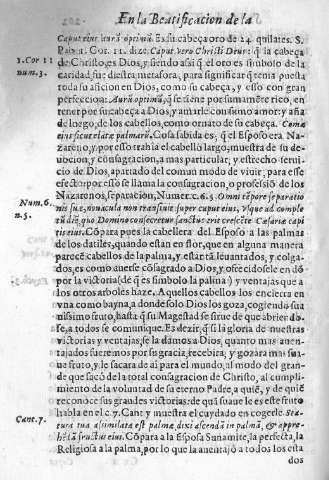 En la Beatificacion de la
Caput eius aurũ optimũ. Es su cabeça oro de 24. quilates. S.
Pab. 1. Cor. 11. dize, Caput vero Christi Deus: q̃ la cabeça
1. Cor 11
de Christo, es Dios, y siendo aßi q̃ el oro es simbolo de la
num. 3.
caridad, fue diestra metafora, para significar q̃ tenia puesta
toda su aficion en Dios, como su cabeça, y esso con gran
perfeccion: Aurũ optimũ, q̃ se tiene por sumamẽte rico, en
tener por su cabeça a Dios, y amarle con sumo amor: y aña
de luego, de los cabellos, como ornato de su cabeça. Comæ
eius sicut elatæ palmarũ. Cosa sabida es, q̃ el Esposo era Na-
zareno, y por esso trahia el cabello largo, muestra de su de-
uocion, y consagracion, a mas particular, y estrecho serui-
cio de Dios, apartado del comun modo de viuir, para esse
efecto: por esso se llama la consagracion, o profesió de los
Nazarenos, separacion, Numer. c. 6. Omni tẽpore separatio
Num. 6.
nis suæ, nouacula non transiuit super caput eius. Vsque ad comple
n. 5.
tũ diẽ, quo Domino consecretur sanctus erit crescẽte Cæsarie capi
tis eius. Cõpara pues la cabellera del Esposo a las palmas
de los datiles, quando estan en flor, que en alguna manera
parecẽ cabellos de la palma, y estar tã leuantados, y colga-
dos, es como auerse cõsagrado a Dios, y ofrecidosele en dõ
por la victoria (de q̃ es simbolo la palma) y ventajas que a
los otros arboles haze. Aquellos cabellos los encierra en
vna como bayna, a donde solo Dios los goza, cogiendo su
nißimo fruto, hasta q̃ su Magestad se sirue de que abrien do-
se, a todos se comunique. Es dezir, q̃ si la gloria de nuestras
victorias y ventajas, se la damos a Dios, quanto mas auen-
tajados fueremos por su gracia, recebira, y gozara mas sua-
ue fruto, y le sacara de ai para el mundo, al modo del gran-
de que sacó de la total consagracion de Christo, al cumpli-
miento de la voluntad de su eterno Padre, a quiẽ, y de quiẽ
reconoce sus grandes victorias: de quã suaue le es este fruto
habla en el c. 7. Cant. y muestra el cuydado en cogerle. Sta-
Cant. 7.
tura tua assimilata est palmæ, dixi ascendã in palmã, & apre-
hẽdã fructus eius. Cõpara a la Esposa Sunamite, la perfecta, la
Religiosa a la palma, por lo que la auentajó a todos los esta
dos